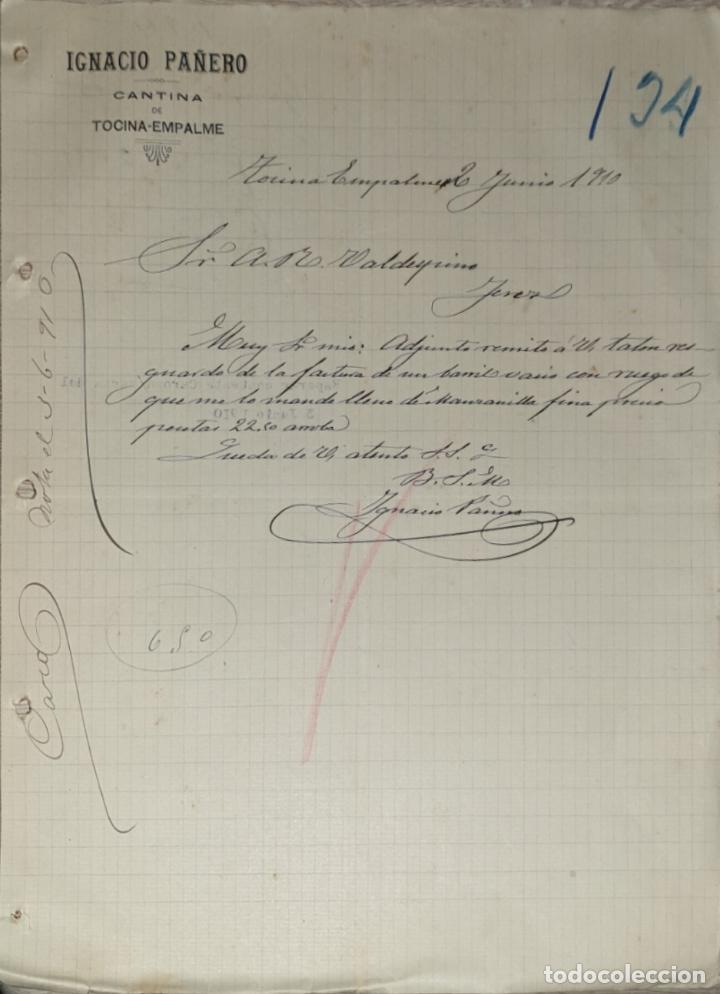 IGNACIO PAÑERO
CANTINA
DE
TOCINA-EMPALME
194
Tocina Empalme 2 Junio 1910
Sr. A. R. Valdespino
Jerez
Muy Sr. mio: Adjunto remito á V. talon res-
guardo de la factura de un barril vacio con ruego de
que me lo mande lleno de Manzanilla fina precio
pesetas 22.50 arroba
Queda de V. atento S. S. q
B. S. M
Ignacio Pañero
Nota el 3-6-910
650
todocoleccion